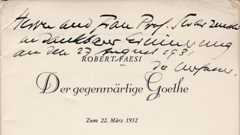 Herrn und Frau Prof.
in dankbarer Erinnerung
an den 27. August 193
ROBERT FAESI
Der gegenwärtige Goethe
Zum 22. März 1932